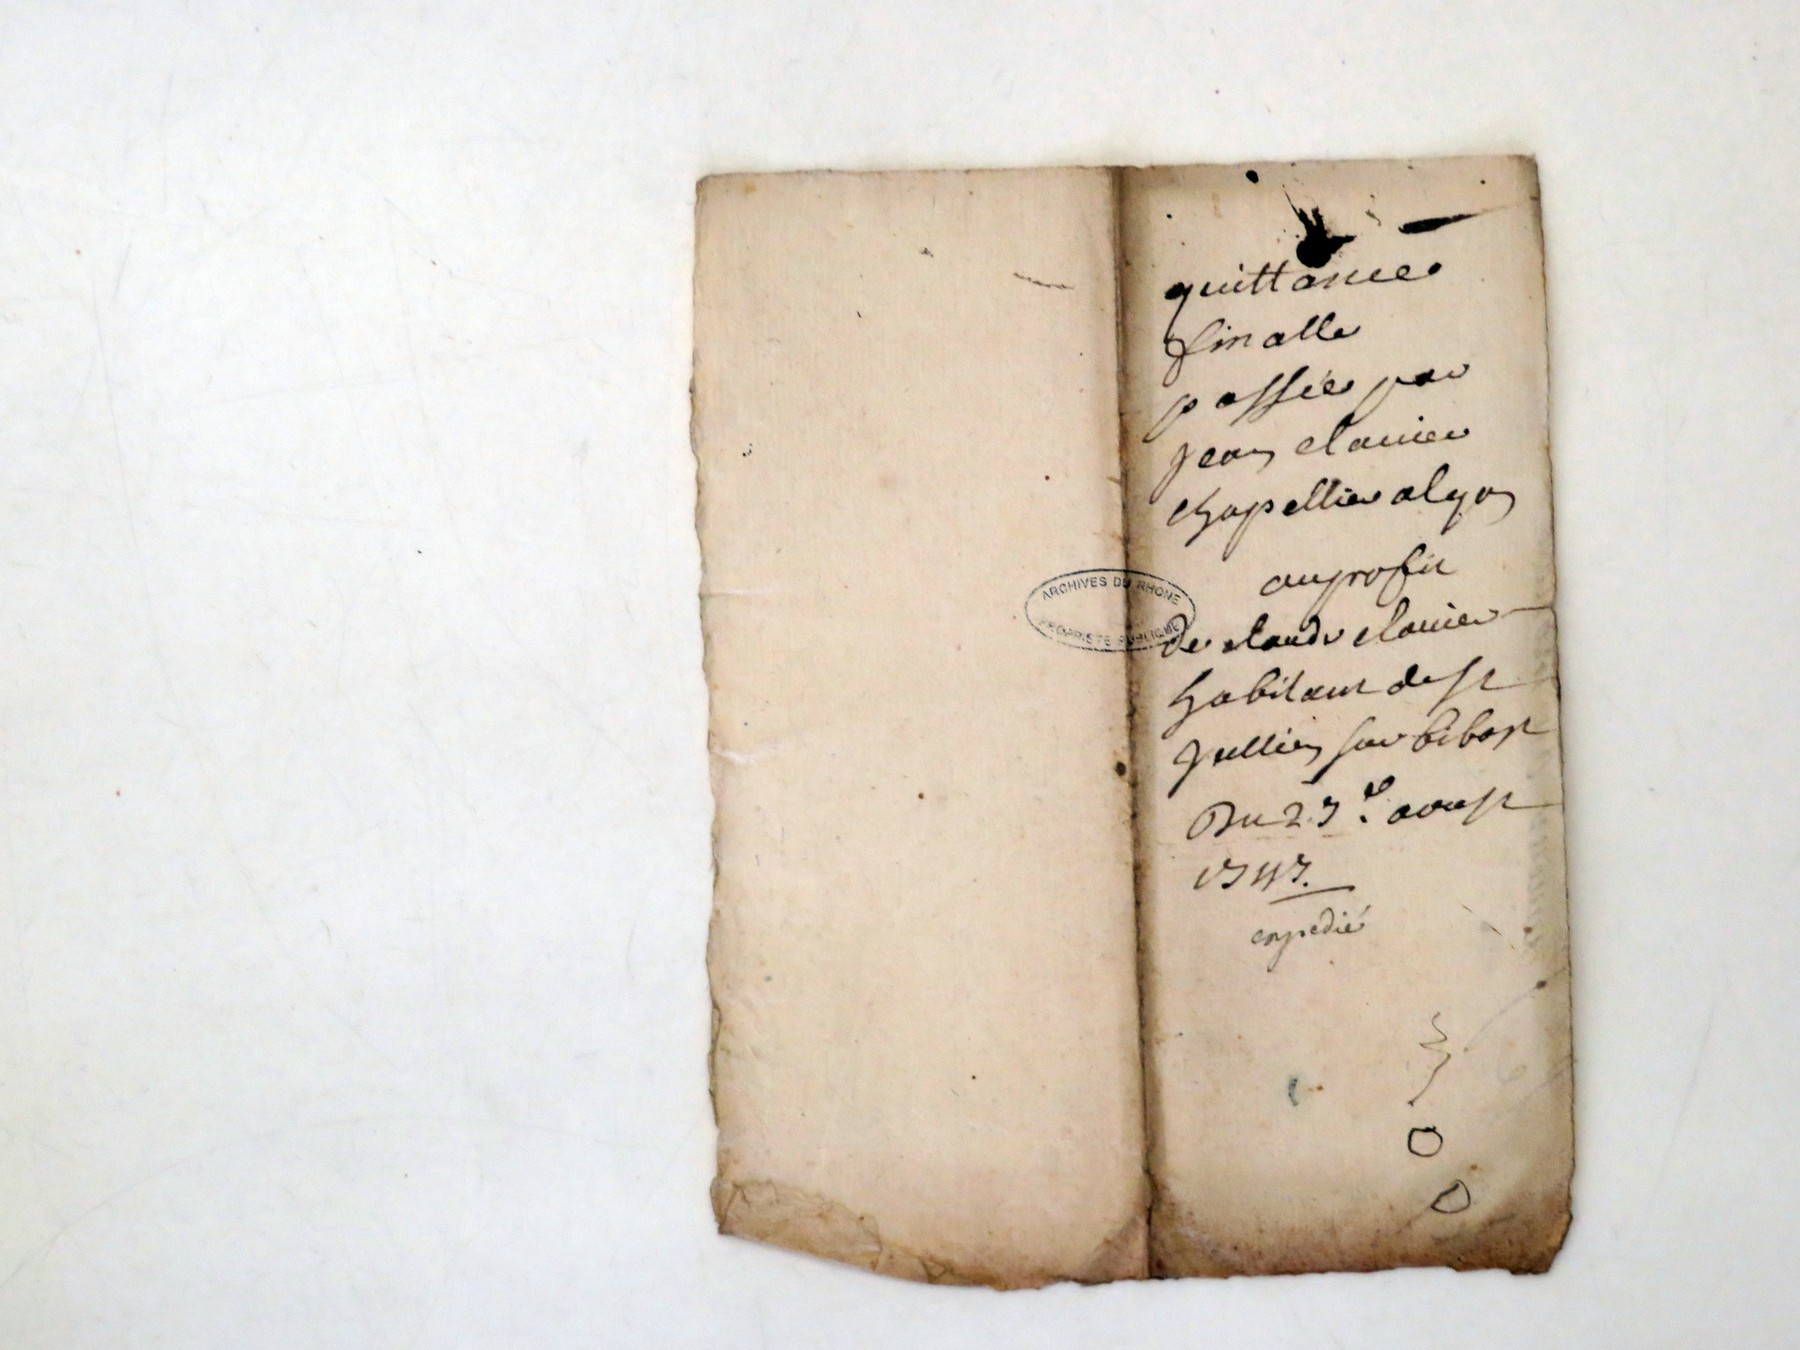 quittance
finalle
passée par
jean clavier
chapellier a lyon
au profit
de claude clavier
habitant de st
jullien sur bibost
Du 23.e aoust
1743.
expedié
ARCHIVES DU RHONE
PROPRIETE PUBLIQUE